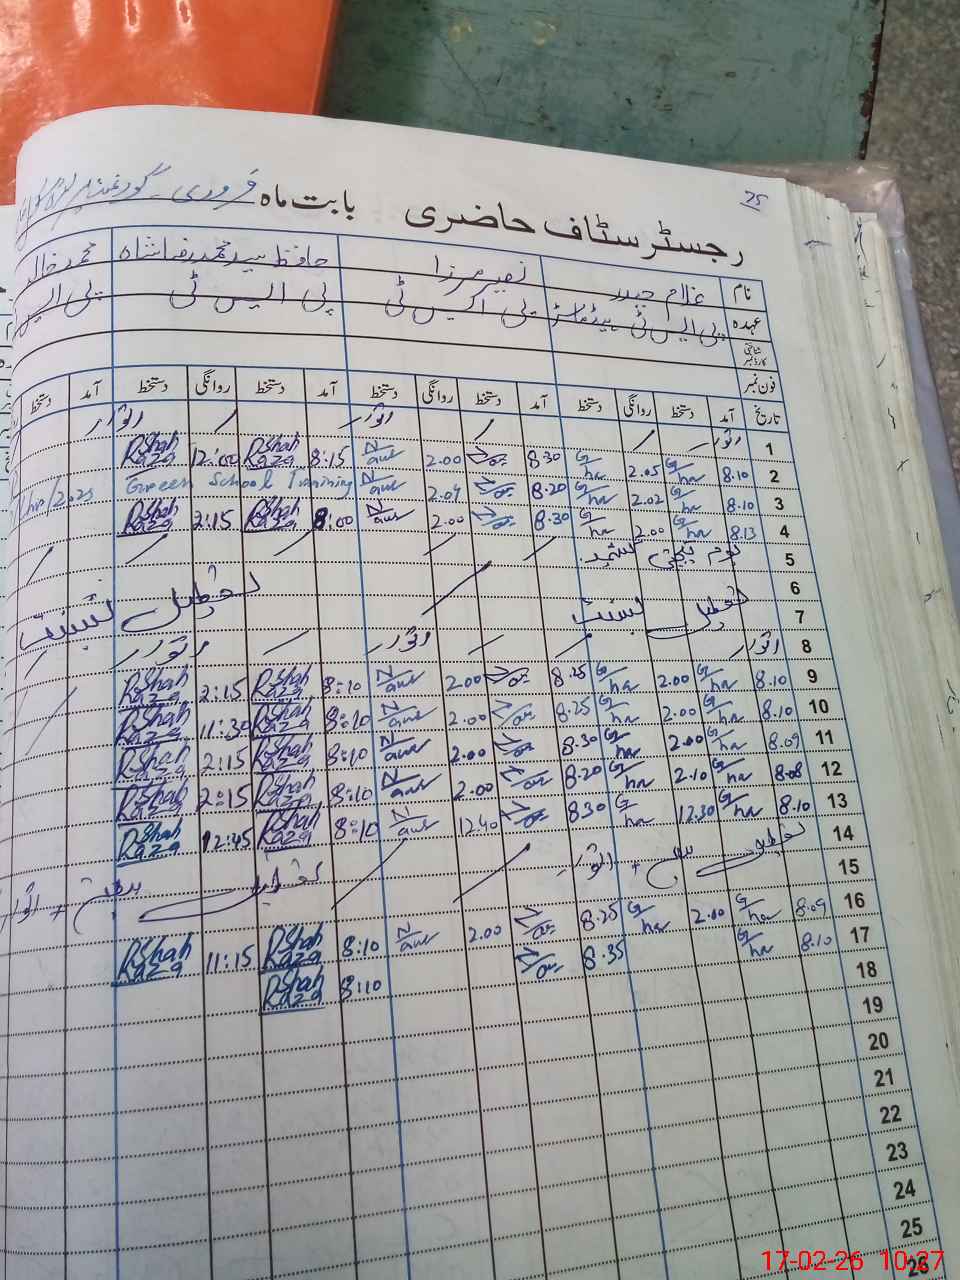 25
رجسٹر سٹاف حاضری بابت ماہ فروری
نام غلام حیدر نصیر مرزا حافظ سید محمد رضا شاہ محمد خالد
عہدہ پی ایس ٹی ہیڈماسٹر پی ایس ٹی پی ایس ٹی پی ایس
شناختی کارڈ نمبر
فون نمبر
تاریخ آمد دستخط روانگی دستخط آمد دستخط روانگی دستخط آمد دستخط روانگی دستخط آمد دستخط
1 اتوار اتوار اتوار
2 8.10 G/hr 2.05 G/hr 8.30 2.00 8:15 RShah Raza 12:00 RShah Raza
3 8.10 G/hr 2.02 G/hr 8.20 2.04 Green School Training
4 8.13 G/hr 2.00 G/hr 8.30 2.00 8:00 RShah Raza 2:15 RShah Raza
5 یوم یکجہتی کشمیر
6
7 تعطیل بسنت تعطیل بسنت
8 اتوار اتوار اتوار
9 8.10 G/hr 2.00 G/hr 8.25 2.00 8:10 RShah Raza 2:15 RShah Raza
10 8.10 G/hr 2.00 G/hr 8.25 2.00 8:10 RShah Raza 11:30 RShah Raza
11 8.09 G/hr 2.00 G/hr 8.30 2.00 8:10 RShah Raza 2:15 RShah Raza
12 8.08 G/hr 2.10 G/hr 8.20 2.00 8:10 RShah Raza 2:15 RShah Raza
13 8.10 G/hr 12.30 G/hr 8.30 12.40 8:10 RShah Raza 12:45 RShah Raza
14 تعطیل + اتوار تعطیل + اتوار
15
16 8.09 G/hr 2.00 G/hr 8.25 2.00 8:10 RShah Raza 11:15 RShah Raza
17 8.10 G/hr 8.35 8:10 RShah Raza
18
19
20
21
22
23
24
25
26
17-02-26 10:27